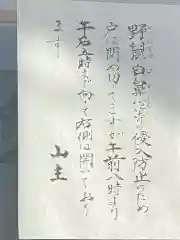 野鼠白鼻心等の侵入防止のため
戸に閂め付てますが午前八時より
午后五時まで向って右側は開いておく
ます
山主